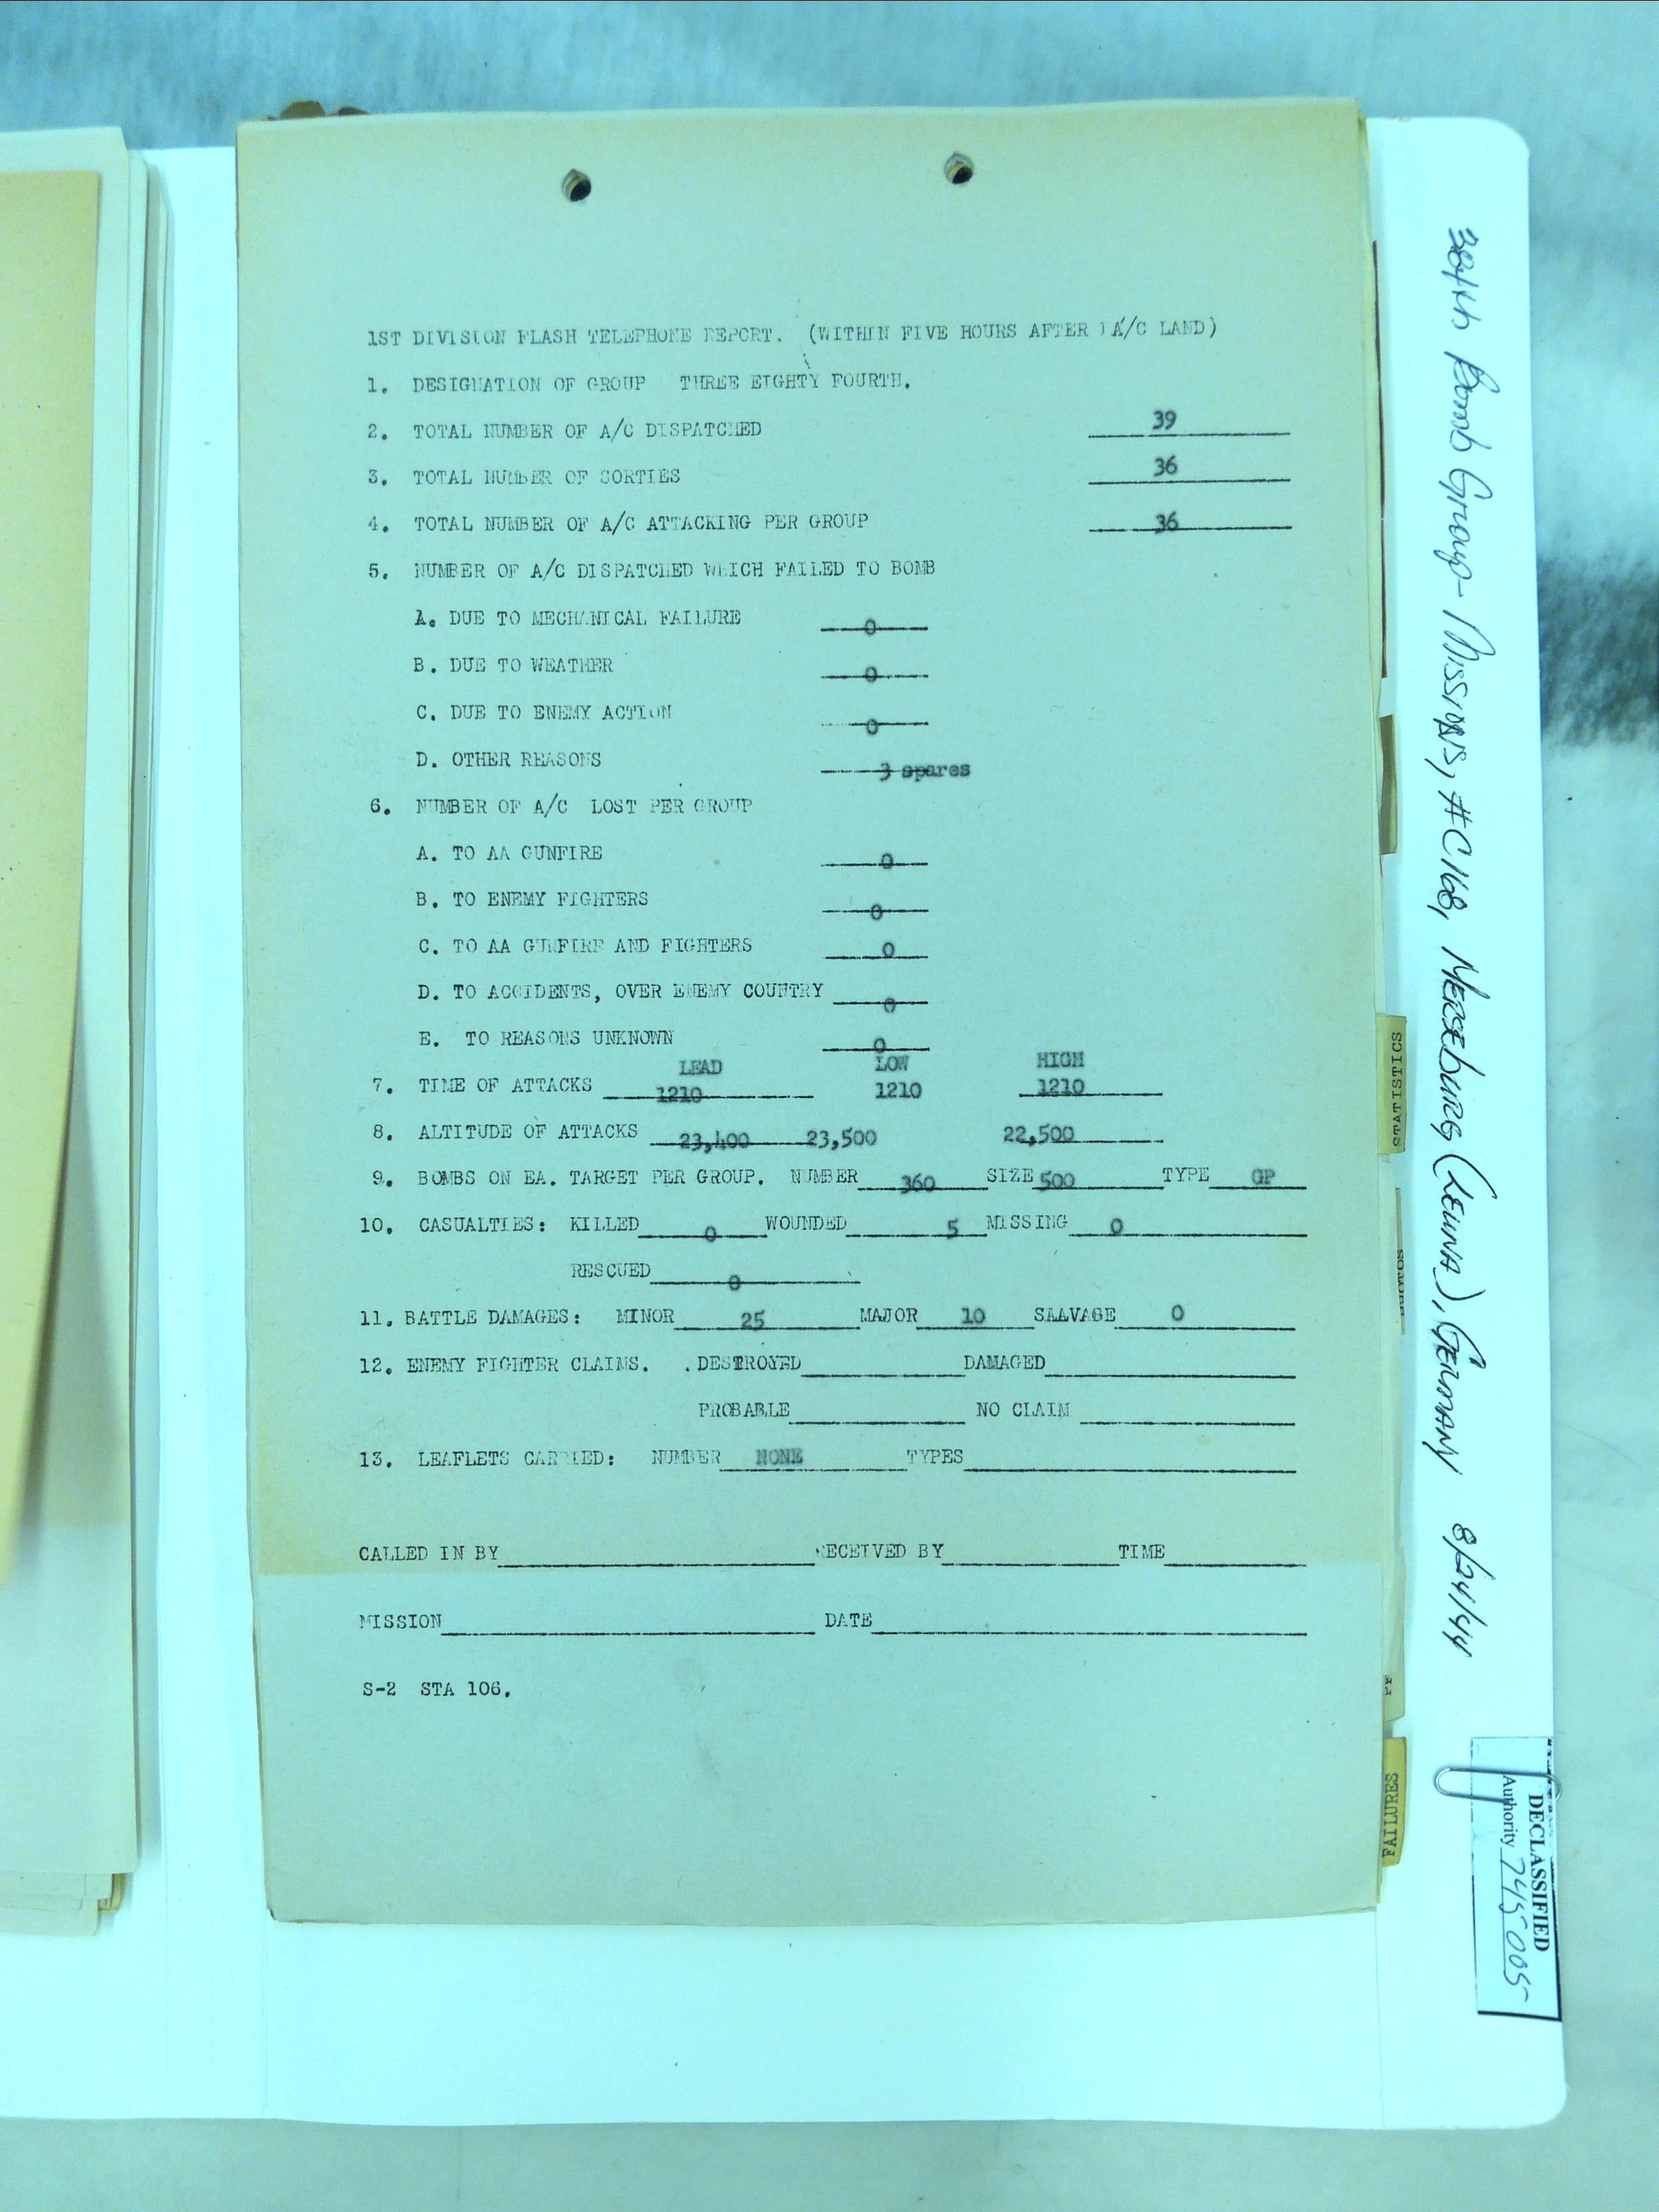 1ST DIVISION FLASH TELEPHONE REPORT. (WITHIN FIVE HOURS AFTER A/C LAND)
1. DESIGNATION OF GROUP THREE EIGHTY FOURTH.
2. TOTAL NUMBER OF A/C DISPATCHED 39
3. TOTAL NUMBER OF SORTIES 36
4. TOTAL NUMBER OF A/C ATTACKING PER GROUP 36
5. NUMBER OF A/C DISPATCHED WHICH FAILED TO BOMB
A. DUE TO MECHANICAL FAILURE 0
B. DUE TO WEATHER 0
C. DUE TO ENEMY ACTION 0
D. OTHER REASONS 3 spares
6. NUMBER OF A/C LOST PER GROUP
A. TO AA GUNFIRE 0
B. TO ENEMY FIGHTERS 0
C. TO AA GUNFIRE AND FIGHTERS 0
D. TO ACCIDENTS, OVER ENEMY COUNTRY 0
E. TO REASONS UNKNOWN 0
LEAD LOW HIGH
7. TIME OF ATTACKS 1210 1210 1210
8. ALTITUDE OF ATTACKS 23,400 23,500 22,500
9. BOMBS ON EA. TARGET PER GROUP. NUMBER 360 SIZE 500 TYPE GP
10. CASUALTIES: KILLED 0 WOUNDED 5 MISSING 0
RESCUED 0
11. BATTLE DAMAGES: MINOR 25 MAJOR 10 SALVAGE 0
12. ENEMY FIGHTER CLAIMS. .DESTROYED DAMAGED
PROBABLE NO CLAIM
13. LEAFLETS CARRIED: NUMBER NONE TYPES
CALLED IN BY RECEIVED BY TIME
MISSION DATE
S-2 STA 106.
STATISTICS
FAILURES
384th Bomb Group - Missions, #C168, Merseburg (Leuna), Germany 8/24/44
DECLASSIFIED
Authority 745005